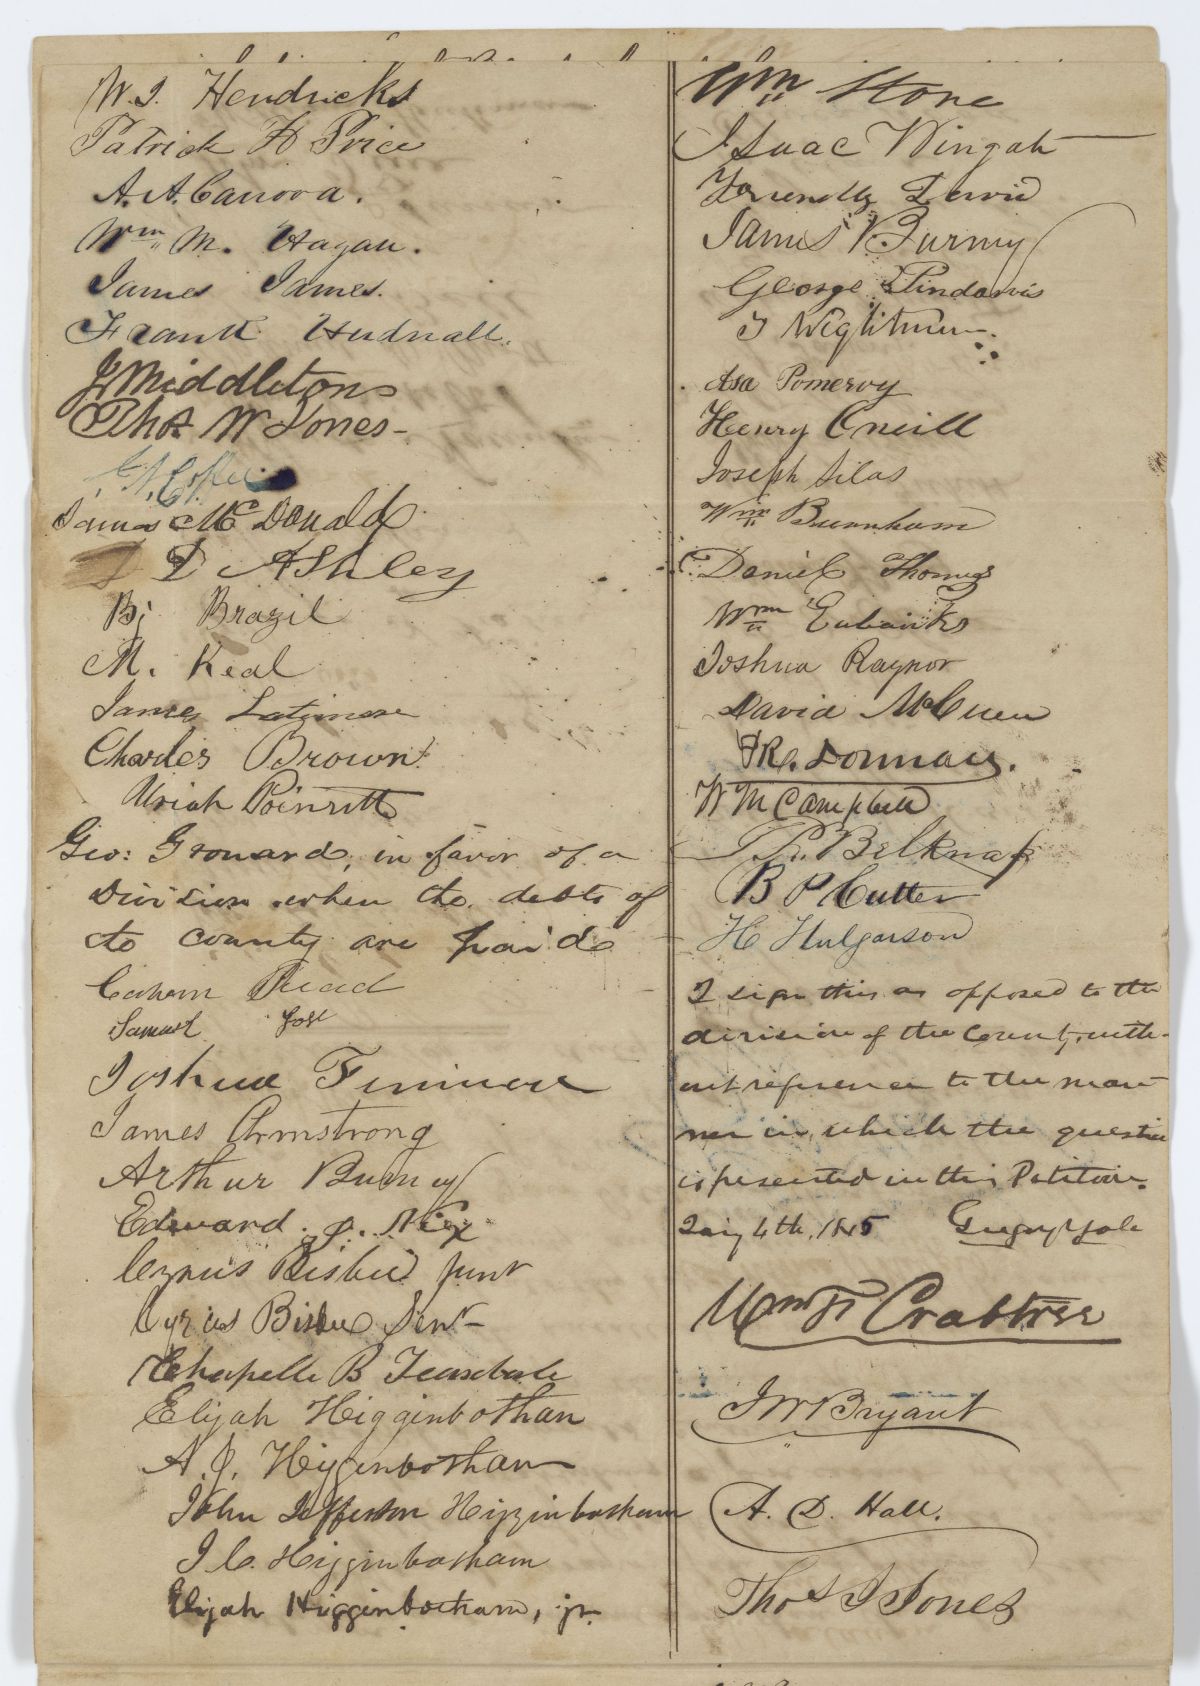 W. I. Hendricks
Patrick H Price
A. A. Canova.
Wm M. Hagan.
James James.
Frank Hudnall.
J Middleton
Thos W Jones
James McDonald
D Ashley
Bj Brazil
M. Keal
James Latimore
Charles Brown
Uriah Poinsett
Geo: Gronard, in favor of a
Division when the debts of
the county are paid
Read
Samuel
Joshua
James Armstrong
Arthur Burney
Edward
Cyrus Bisbee junr
Cyrus Bisbee Senr
Chapelle B Teasdale
Elijah Higginbothan
A. J. Higginbotham
John Jefferson Higginbotham
J. C. Higginbotham
Elijah Higginbotham, jr.
Wm Stone
Isaac Wingate
Friendly Lewis
James Burney
George Pindarvis
Asa Pomeroy
Henry Oneill
Joseph Silas
Wm Burnham
Daniel Thomas
Wm Eubanks
Joshua Raynor
David McCuen
R. Dorman.
W M Campbell
Belknap
B P Cutter
H
I sign this as opposed to the
division of the County, with-
out reference to the man-
ner in which the question
is presented in this Petition.
4th, 1845 Gregory Yale
Wm H Crabtree
J W Bryant
A. D. Hall.
Thos J Jones